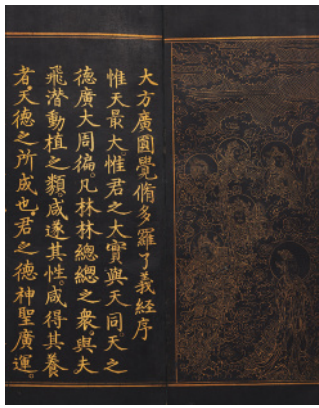 大方廣圓覺脩多羅了義經序
惟天最大惟君之大實與天同天之
德廣大周徧。凡林林總總之衆。與夫
飛潛動植之類咸遂其性。咸得其養
者天德之所成也。君之德神聖廣運。